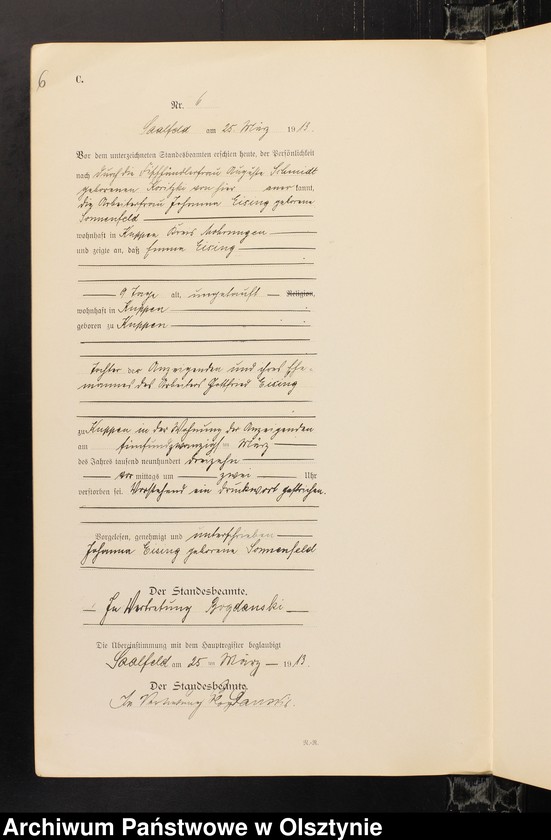 6
C.
Nr. 6
Saalfeld am 25 März 1913.
Vor dem unterzeichneten Standesbeamten erschien heute, der Persönlichkeit
nach durch die Fischhändlerfrau Auguste Schmidt
geborenen von hier anerkannt,
die Arbeiterfrau Johanna Eising geborene
Sonnenfeld
wohnhaft in Kuppen Kreis Mohrungen
und zeigte an, daß Emma Eising
9 Tage alt, ungetauft Religion,
wohnhaft in Kuppen
geboren zu Kuppen
Tochter der Anzeigenden und ihres Ehe-
mannes des Arbeiters Gottfried Eising
zu Kuppen in der Wohnung der Anzeigenden
am fünfundzwanzigsten März
des Jahres tausend neunhundert dreizehn
vor mittags um zwei Uhr
verstorben sei. Vorstehend ein Druckwort gestrichen.
Vorgelesen, genehmigt und unterschrieben
Johanna Eising geborene Sonnenfeld
Der Standesbeamte.
In Vertretung Bogdanski
Die Übereinstimmung mit dem Hauptregister beglaubigt
Saalfeld am 25 ten März 1913.
Der Standesbeamte.
In Vertretung Bogdanski.
R.-R.
Archiwum Państwowe w Olsztynie